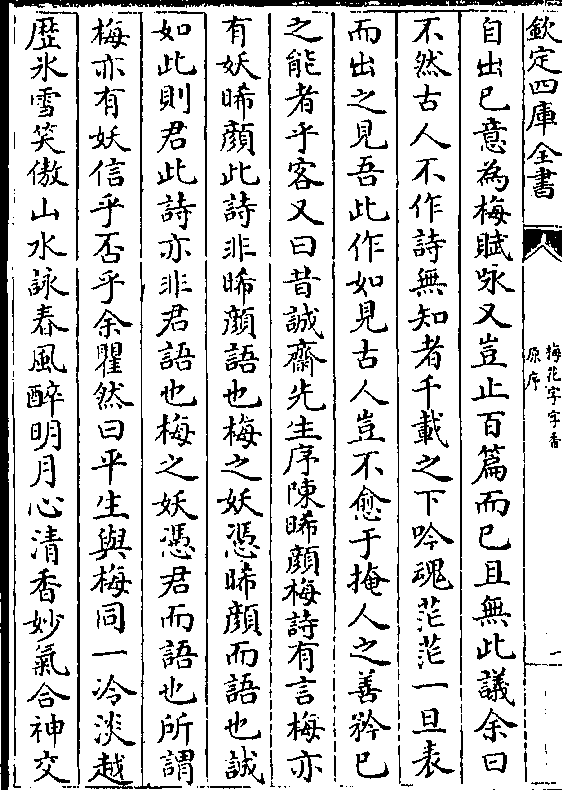 欽定四庫全書
梅花字字香
原序
一
自出已意為梅賦咏又豈止百篇而已且無此議余曰
不然古人不作詩無知者千載之下吟魂茫茫一旦表
而出之見吾此作如見古人豈不愈于掩人之善矜已
之能者乎客又曰昔誠齋先生序陳晞顔梅詩有言梅亦
有妖晞顔此詩非晞顔語也梅之妖憑晞顔而語也誠
如此則君此詩亦非君語也梅之妖憑君而語也所謂
梅亦有妖信乎否乎余瞿然曰平生與梅同一冷淡越
歴氷雪笑傲山水詠春風醉明月心清香妙氣合神交